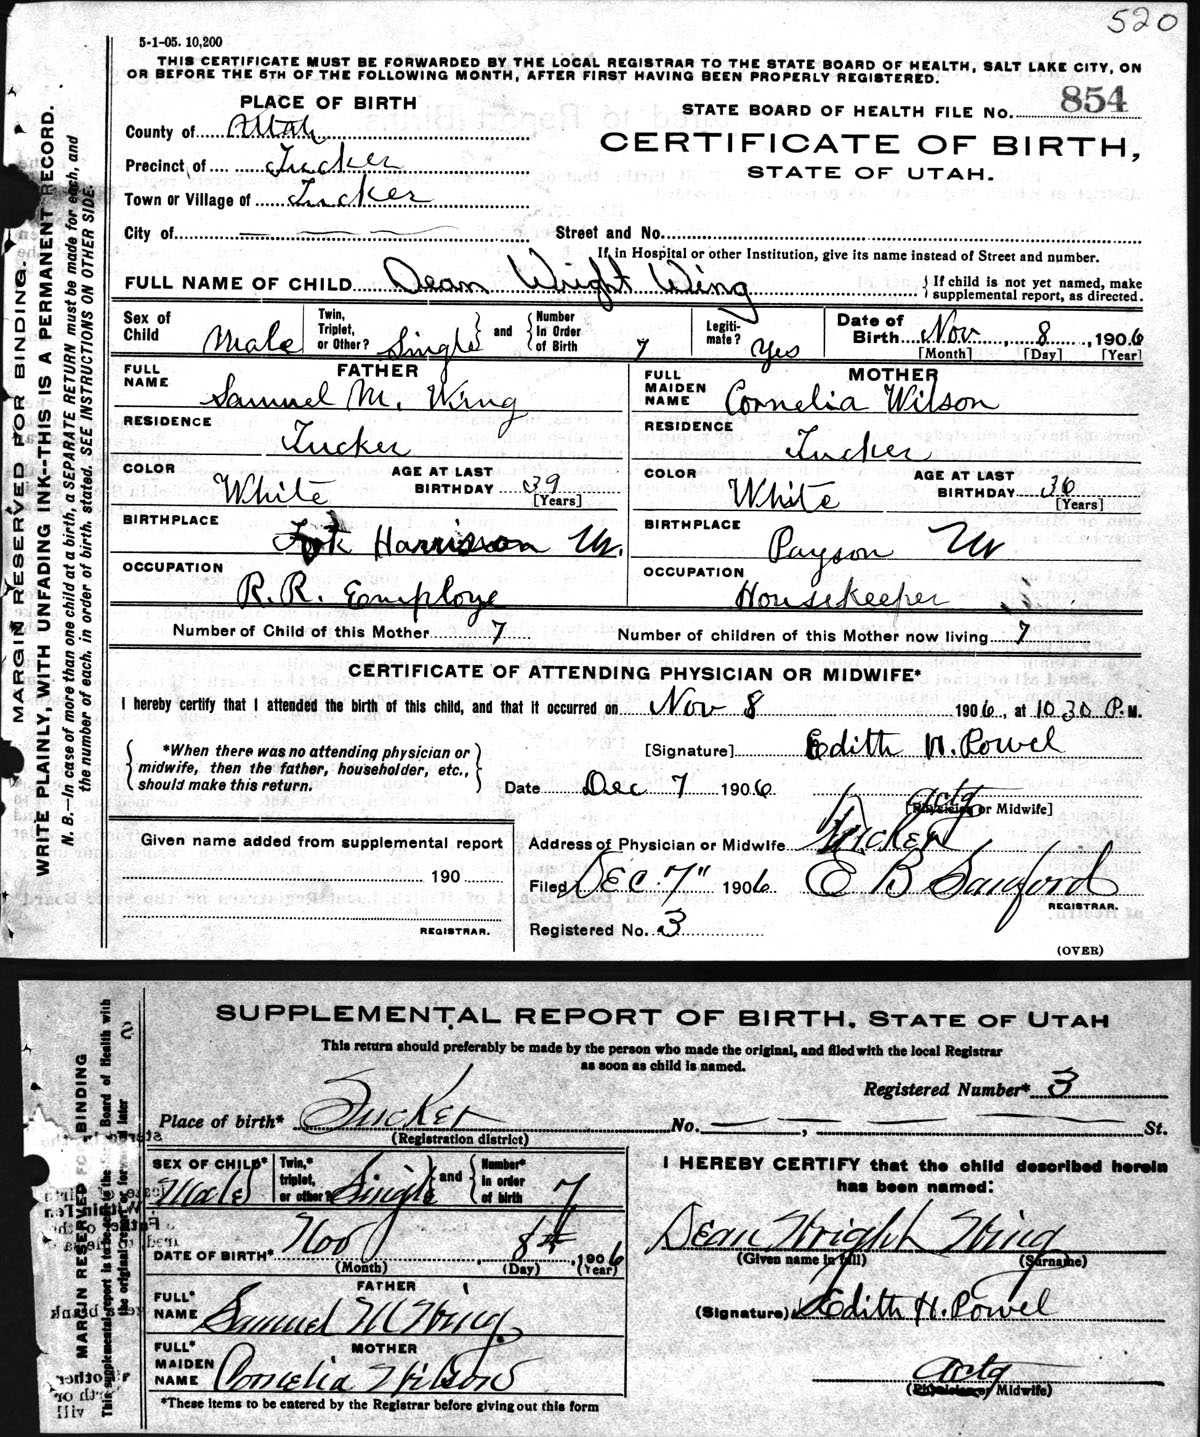 520
5-1-05. 10,200
THIS CERTIFICATE MUST BE FORWARDED BY THE LOCAL REGISTRAR TO THE STATE BOARD OF HEALTH, SALT LAKE CITY, ON
OR BEFORE THE 5TH OF THE FOLLOWING MONTH, AFTER FIRST HAVING BEEN PROPERLY REGISTERED.
PLACE OF BIRTH
STATE BOARD OF HEALTH FILE No. 854
County of Utah
CERTIFICATE OF BIRTH,
Precinct of Tucker
STATE OF UTAH.
Town or Village of Tucker
City of
Street and No.
If in Hospital or other Institution, give its name instead of Street and number.
FULL NAME OF CHILD Dean Wright Wing
If child is not yet named, make
supplemental report, as directed.
Sex of Child Male
Twin, Triplet, or Other? Single and Number In Order of Birth 7
Legiti-mate? Yes
Date of Birth Nov 8, 1906
[Month] [Day] [Year]
FATHER
FULL NAME Samuel M. Wing
MOTHER
FULL MAIDEN NAME Cornelia Wilson
RESIDENCE Tucker
RESIDENCE Tucker
COLOR White AGE AT LAST BIRTHDAY 39 [Years]
COLOR White AGE AT LAST BIRTHDAY 36 [Years]
BIRTHPLACE Harrison
BIRTHPLACE Payson
OCCUPATION R.R. Employe
OCCUPATION Housekeeper
Number of Child of this Mother 7 Number of children of this Mother now living 7
CERTIFICATE OF ATTENDING PHYSICIAN OR MIDWIFE*
I hereby certify that I attended the birth of this child, and that it occurred on Nov 8 1906, at 10 30 P. M.
*When there was no attending physician or
midwife, then the father, householder, etc.,
should make this return.
[Signature] Edith H. Powel
Date Dec 7 1906
actg
[Physician or Midwife]
Given name added from supplemental report
Address of Physician or Midwife Tucker
190
Filed DEC 7" 1906 E B Sanford
REGISTRAR.
REGISTRAR.
Registered No. 3
(OVER)
MARGIN RESERVED FOR BINDING.
WRITE PLAINLY, WITH UNFADING INK--THIS IS A PERMANENT RECORD.
N. B.—In case of more than one child at a birth, a SEPARATE RETURN must be made for each, and
the number of each, in order of birth, stated. SEE INSTRUCTIONS ON OTHER SIDE.
SUPPLEMENTAL REPORT OF BIRTH, STATE OF UTAH
This return should preferably be made by the person who made the original, and filed with the local Registrar
as soon as child is named.
Registered Number* 3
Place of birth* Tucker No. , St.
(Registration district)
SEX OF CHILD* Male
Twin,* triplet, or other? Single and Number* in order of birth 7
I HEREBY CERTIFY that the child described herein
has been named:
DATE OF BIRTH* Nov 8th, 1906
(Month) (Day) (Year)
Dean Wright Wing
(Given name in full) (Surname)
FATHER
FULL* NAME Samuel M Wing
(Signature) Edith H. Powel
MOTHER
FULL* MAIDEN NAME Cornelia Wilson
actg
(Physician or Midwife)
*These items to be entered by the Registrar before giving out this form
MARGIN RESERVED FOR BINDING